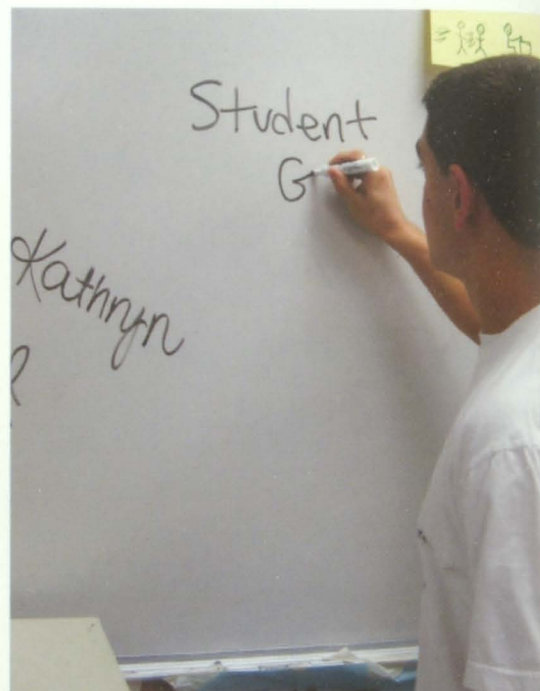 Student
G
Kathryn